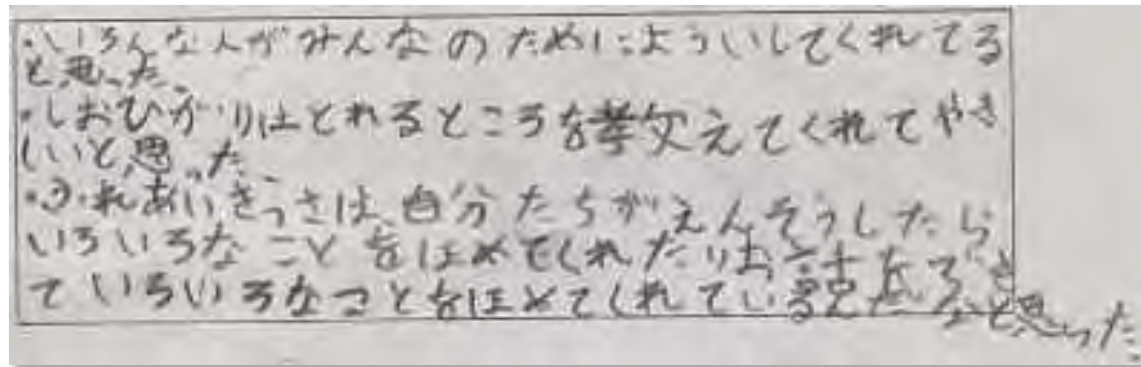 ・いろんな人がみんなのためによういしてくれてる
と思った。
・しおひがりはとれるところを教えてくれてやさ
しいと思った。
・ふれあいきっさは、自分たちがえんそうしたら
いろいろなことをほめてくれたりお話を
ていろいろなことをほめてくれている と思った。